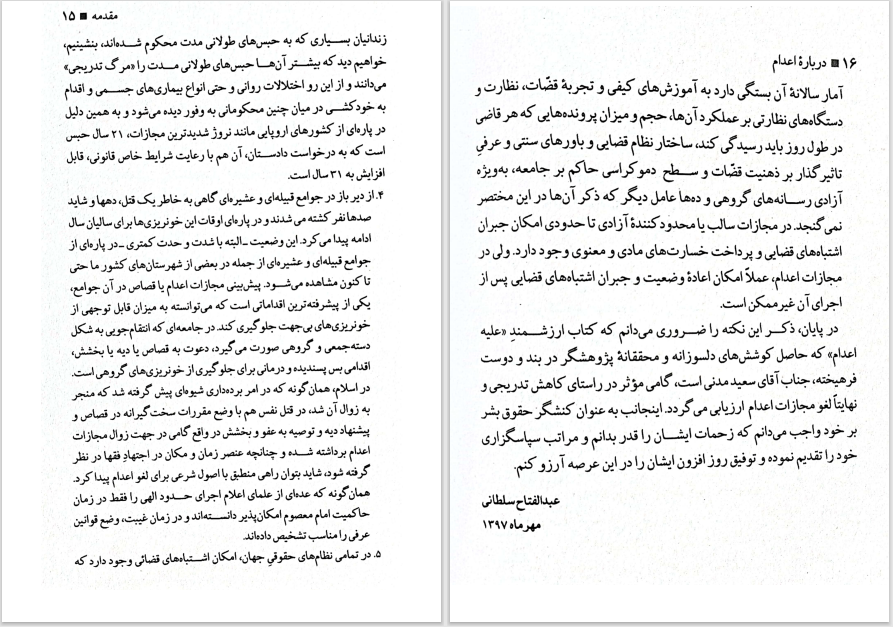 مقدمه ■ ۱۵
زندانیان بسیاری که به حبس‌های طولانی مدت محکوم شده‌اند، بنشینیم،
خواهیم دید که بیشتر آن‌ها حبس‌های طولانی مدت را «مرگ تدریجی»
می‌دانند و از این رو اختلالات روانی و حتی انواع بیماری‌های جسمی و اقدام
به خودکشی در میان چنین محکومانی به وفور دیده می‌شود و به همین دلیل
در پاره‌ای از کشورهای اروپایی مانند نروژ شدیدترین مجازات، ۲۱ سال حبس
است که به درخواست دادستان، آن هم با رعایت شرایط خاص قانونی، قابل
افزایش به ۳۱ سال است.
۴. از دیر باز در جوامع قبیله‌ای و عشیره‌ای گاهی به خاطر یک قتل، دهها و شاید
صدها نفر کشته می شدند و در پاره‌ای اوقات این خونریزی‌ها برای سالیان سال
ادامه پیدا می‌کرد. این وضعیت ـ البته با شدت و حدت کمتری ـ در پاره‌ای از
جوامع قبیله‌ای و عشیره‌ای از جمله در بعضی از شهرستان‌های کشور ما حتی
تا کنون مشاهده می‌شود. پیش‌بینی مجازات اعدام یا قصاص در آن جوامع،
یکی از پیشرفته‌ترین اقداماتی است که می‌توانسته به میزان قابل توجهی از
خونریزی‌های بی‌جهت جلوگیری کند. در جامعه‌ای که انتقام‌جویی به شکل
دسته‌جمعی و گروهی صورت می‌گیرد، دعوت به قصاص یا دیه یا بخشش،
اقدامی بس پسندیده و درمانی برای جلوگیری از خونریزی‌های گروهی است.
در اسلام، همان‌گونه که در امر برده‌داری شیوه‌ای پیش گرفته شد که منجر
به زوال آن شد، در قتل نفس هم با وضع مقررات سخت‌گیرانه در قصاص و
پیشنهاد دیه و توصیه به عفو و بخشش در واقع گامی در جهت زوال مجازات
اعدام برداشته شده و چنانچه عنصر زمان و مکان در اجتهاد فقها در نظر
گرفته شود، شاید بتوان راهی منطبق با اصول شرعی برای لغو اعدام پیدا کرد.
همان‌گونه که عده‌ای از علمای اعلام اجرای حدود الهی را فقط در زمان
حاکمیت امام معصوم امکان‌پذیر دانسته‌اند و در زمان غیبت، وضع قوانین
عرفی را مناسب تشخیص داده‌اند.
۵. در تمامی نظام‌های حقوقیِ جهان، امکان اشتباه‌های قضائی وجود دارد که
۱۶ ■ دربارهٔ اعدام
آمار سالانهٔ آن بستگی دارد به آموزش‌های کیفی و تجربهٔ قضّات، نظارت و
دستگاه‌های نظارتی بر عملکرد آن‌ها، حجم و میزان پرونده‌هایی که هر قاضی
در طول روز باید رسیدگی کند، ساختار نظام قضایی و باورهای سنتی و عرفیِ
تاثیرگذار بر ذهنیت قضّات و سطح دموکراسی حاکم بر جامعه، به‌ویژه
آزادی رسانه‌های گروهی و ده‌ها عامل دیگر که ذکر آن‌ها در این مختصر
نمی‌گنجد. در مجازات سالب یا محدودکنندهٔ آزادی تا حدودی امکان جبران
اشتباه‌های قضایی و پرداخت خسارت‌های مادی و معنوی وجود دارد. ولی در
مجازات اعدام، عملاً امکان اعادهٔ وضعیت و جبران اشتباه‌های قضایی پس از
اجرای آن غیرممکن است.
در پایان، ذکر این نکته را ضروری می‌دانم که کتاب ارزشمندِ «علیه
اعدام» که حاصل کوشش‌های دلسوزانه و محققانهٔ پژوهشگر در بند و دوست
فرهیخته، جناب آقای سعید مدنی است، گامی مؤثر در راستای کاهش تدریجی و
نهایتاً لغو مجازات اعدام ارزیابی می‌گردد. اینجانب به عنوان کنشگر حقوق بشر
بر خود واجب می‌دانم که زحمات ایشان را قدر بدانم و مراتب سپاسگزاری
خود را تقدیم نموده و توفیق روز افزون ایشان را در این عرصه آرزو کنم.
عبدالفتاح سلطانی
مهرماه ۱۳۹۷